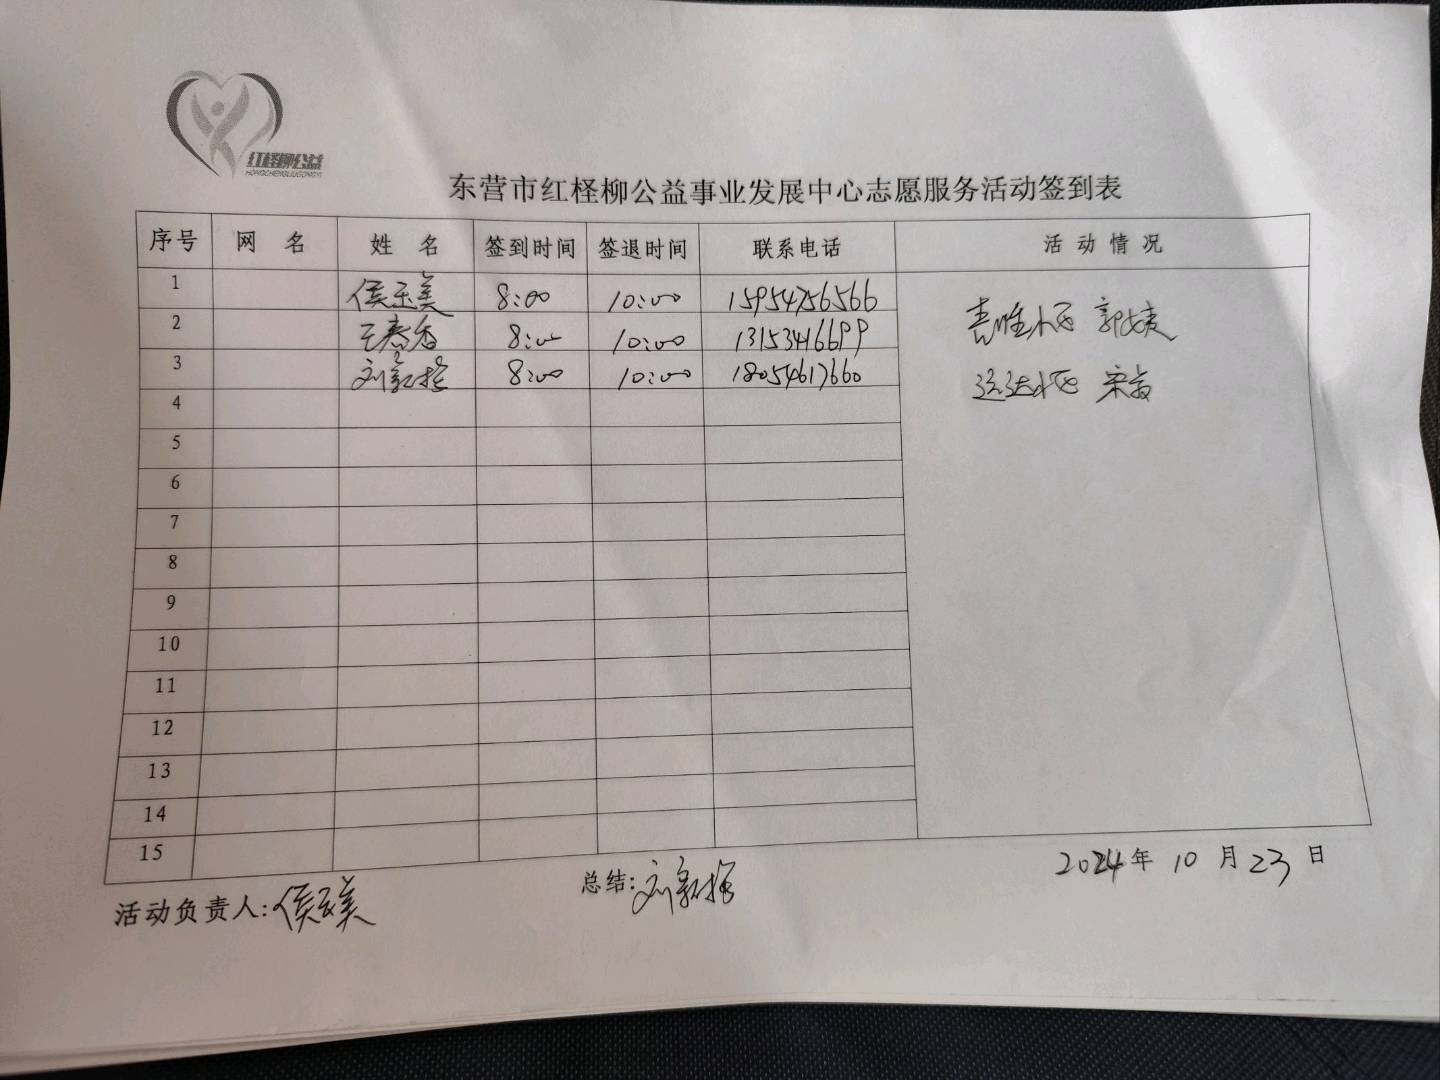 红柽柳公益
HONGCHENGLIUGONGYI
东营市红柽柳公益事业发展中心志愿服务活动签到表
序号 网 名 姓 名 签到时间 签退时间 联系电话 活 动 情 况
1 8:00 10:00 15954756566
2 王春香 8:00 10:00 13153416699
3 刘 8:00 10:00 18054617660
小区 郭
运达小区 宋
4
5
6
7
8
9
10
11
12
13
14
15
活动负责人: 侯 美 总结: 刘 2024年 10 月 23 日